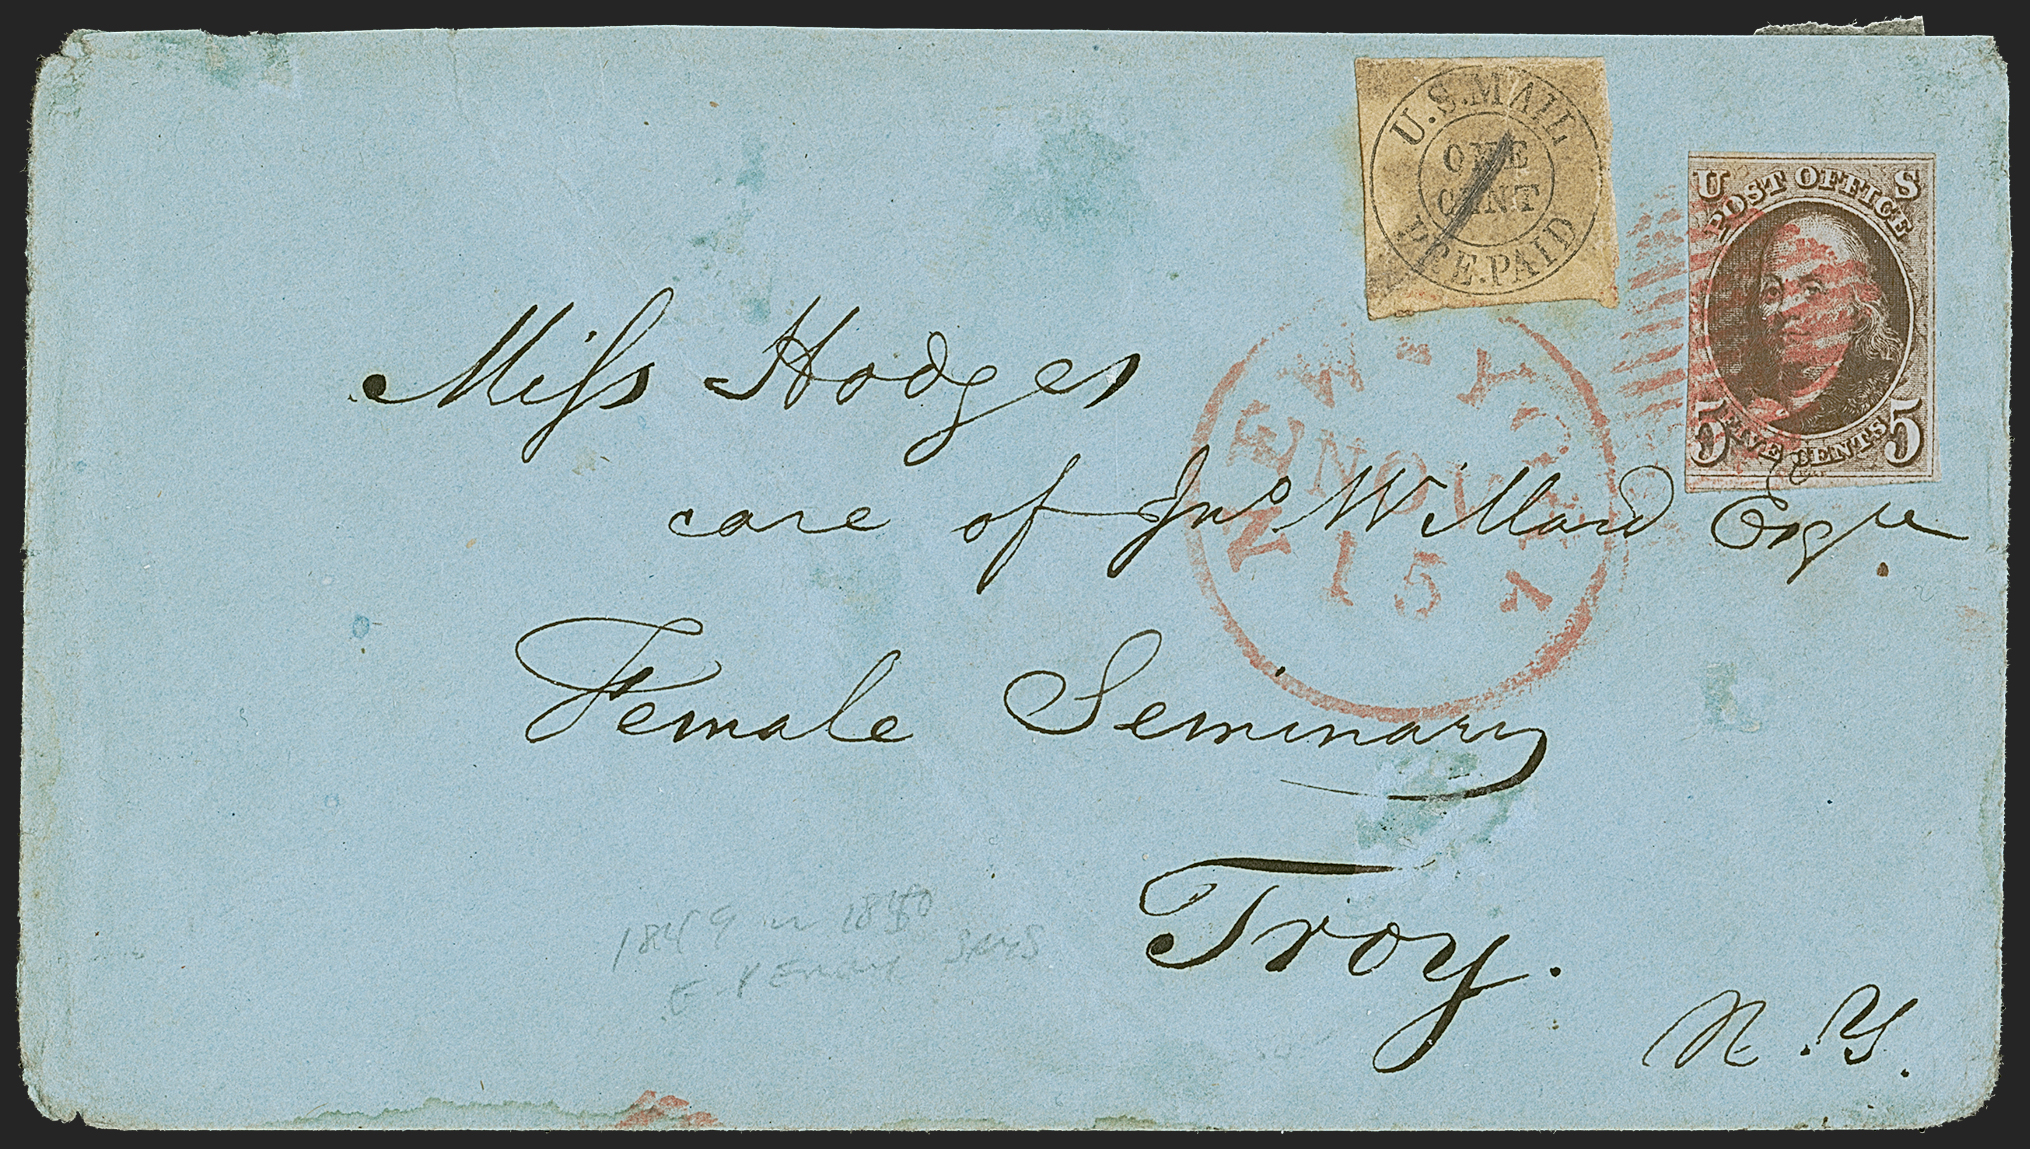 U.S.MAIL
ONE
CENT
PRE.PAID
U S
POST OFFICE
5 FIVE CENTS 5
NEW-YORK
NOV
15
Miss Hodges
care of Jnº Willard Esqre.
Female Seminary
Troy.
N.Y.
1849 or 1850